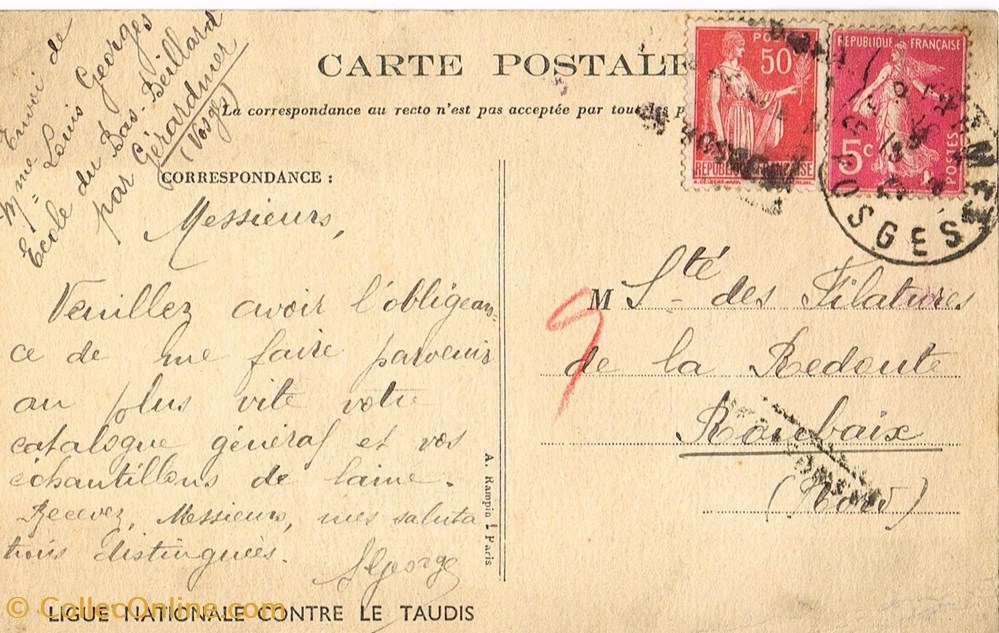 Envoi de
Mme Louis Georges
Ecole du Bas-Beillard
par Gérardmer
(Vosges)
CARTE POSTALE
La correspondance au recto n'est pas acceptée par tous les
CORRESPONDANCE :
Messieurs,
Veuillez avoir l'obligean-
ce de me faire parvenir
au plus vite votre
catalogue général et vos
échantillons de laine.
Recevez, Messieurs, mes saluta
tions distinguées.
LGeorge
A. Rampin - Paris
POSTES
50
REPUBLIQUE FRANÇAISE
REPUBLIQUE FRANÇAISE
5c
POSTES
VOSGES
M Sté des Filatures
de la Redoute
Roubaix
(Nord)
9
LIGUE NATIONALE CONTRE LE TAUDIS
© CollecOnline.com